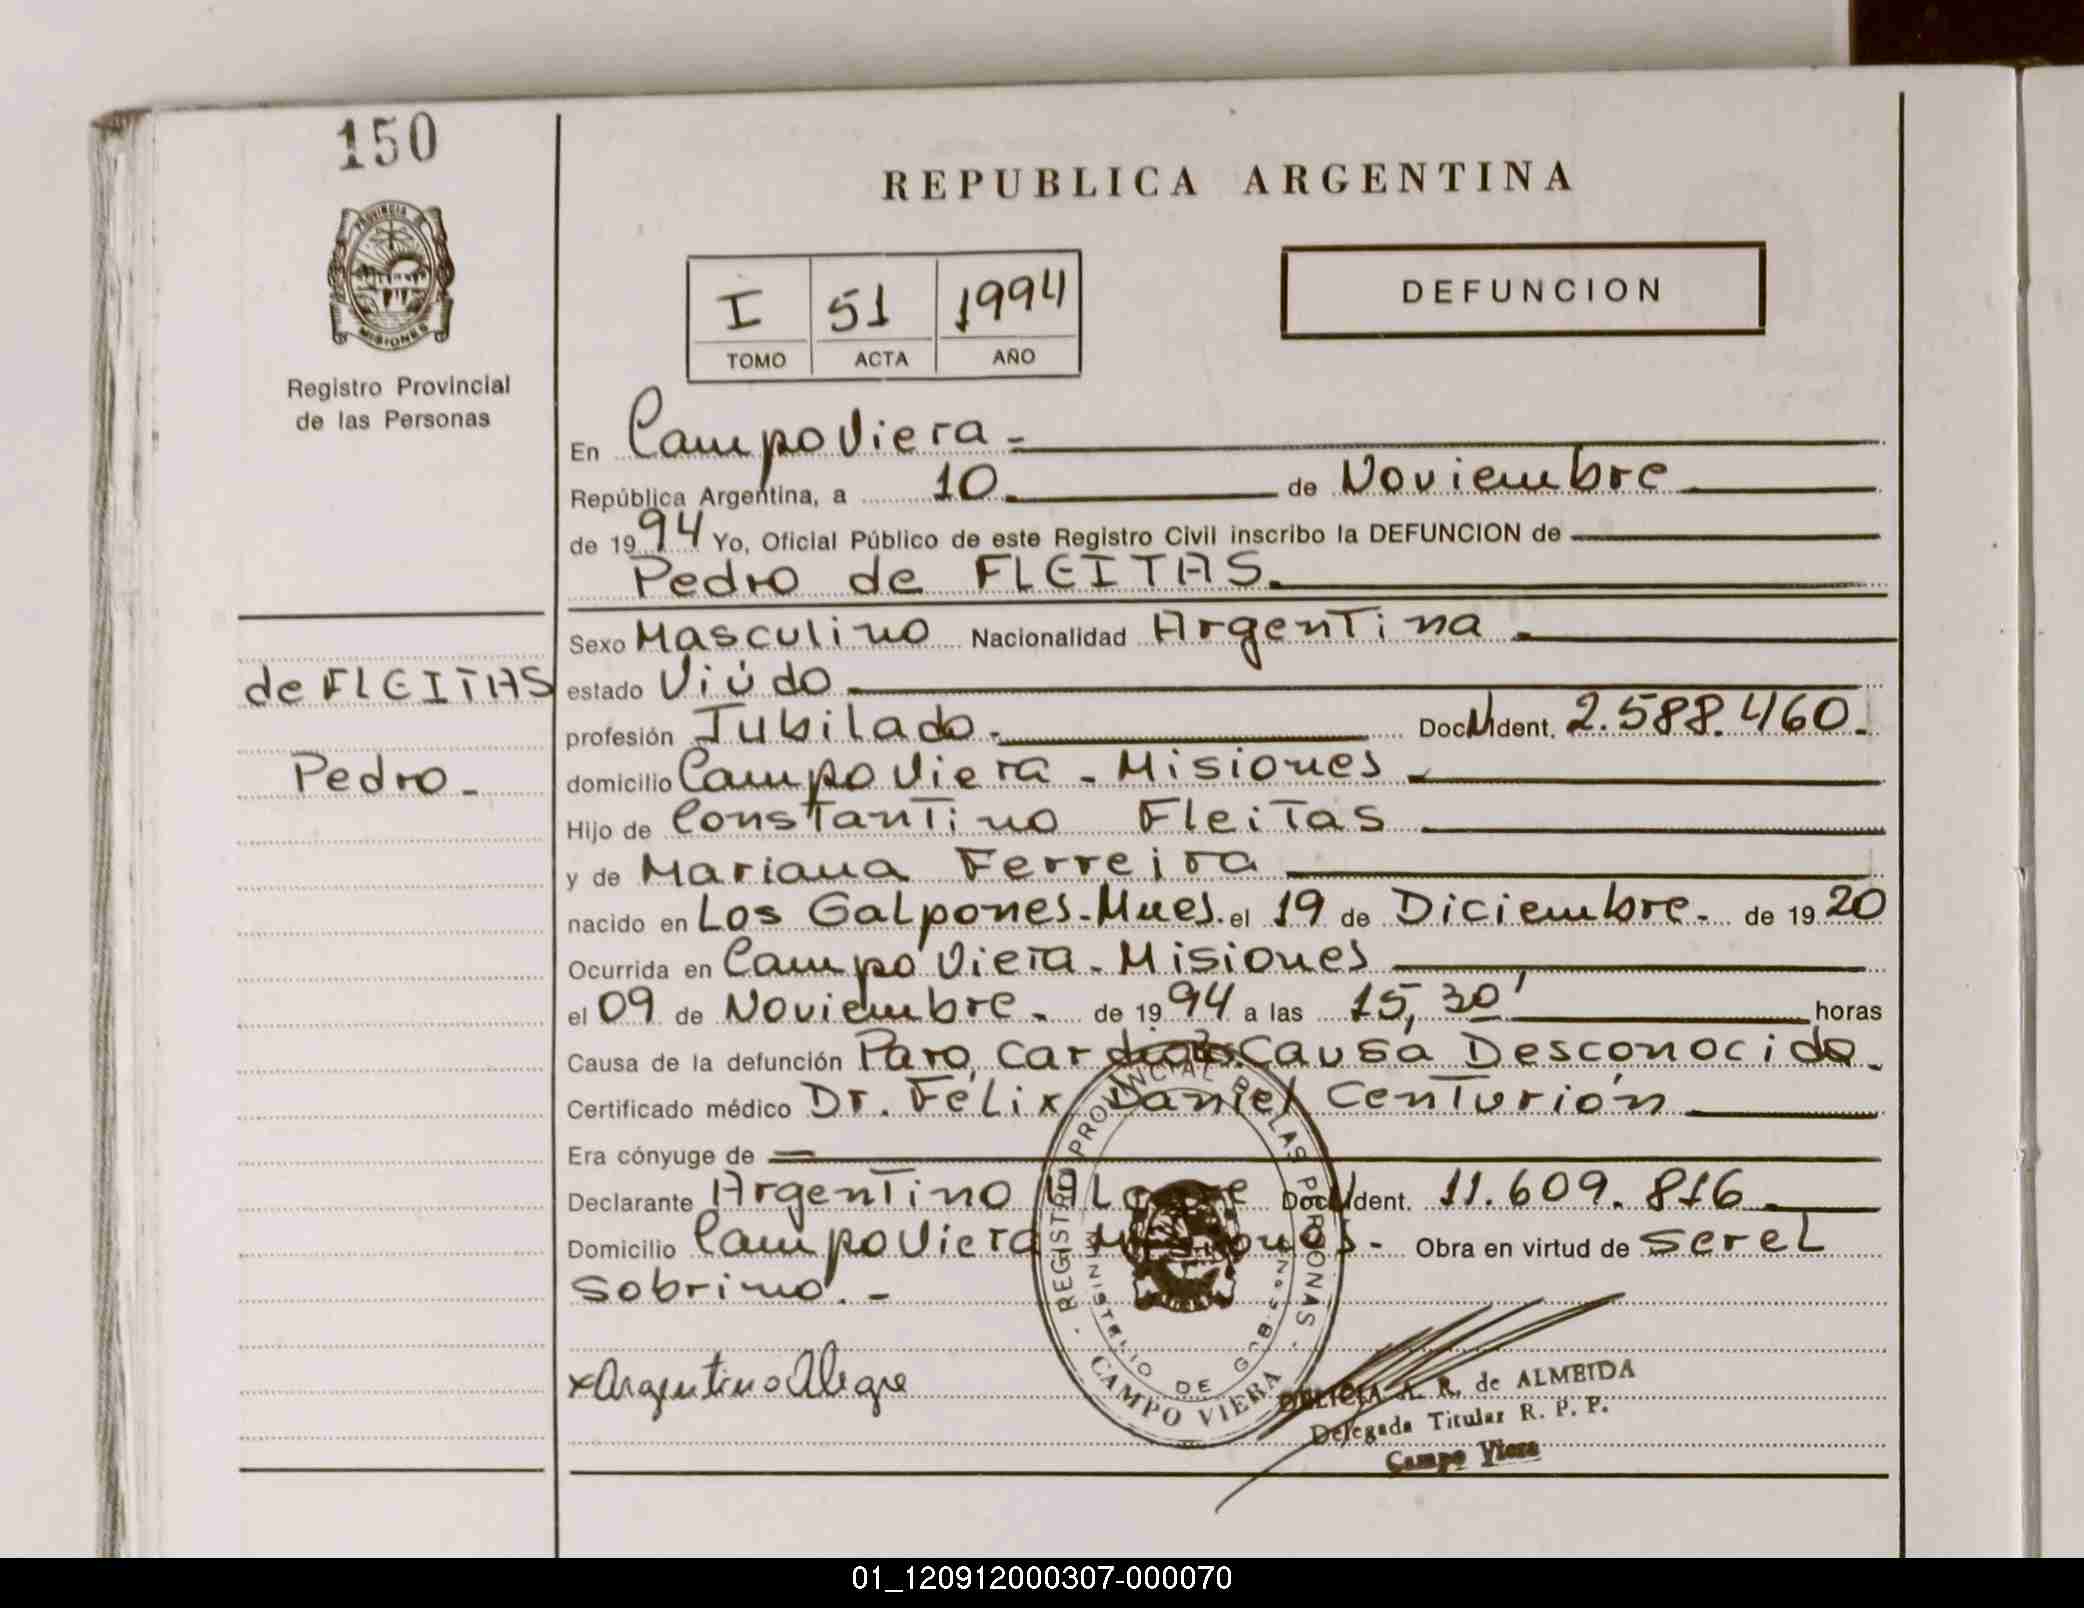 150
REPUBLICA ARGENTINA
PROVINCIA DE
MISIONES
Registro Provincial
de las Personas
I 51 1994
TOMO ACTA AÑO
DEFUNCION
En Campo Viera -
República Argentina, a 10 de Noviembre
de 1994 Yo, Oficial Público de este Registro Civil inscribo la DEFUNCION de
Pedro de FLEITAS.
Sexo Masculino Nacionalidad Argentina
de FLEITAS
estado Viúdo
profesión Jubilado. Doc. Ident. 2.588.460.
Pedro -
domicilio Campo Viera - Misiones
Hijo de Constantino Fleitas
y de Mariana Ferreira
nacido en Los Galpones - Mnes. el 19 de Diciembre. de 1920
Ocurrida en Campo Viera - Misiones
el 09 de Noviembre. de 1994 a las 15,30' horas
Causa de la defunción Paro Causa Desconocida.
Certificado médico Dr. Félix Daniel Centurión
Era cónyuge de =
Declarante Argentino Alegre Doc. Ident. 11.609.816
Domicilio Campo Viera Misiones. - Obra en virtud de ser el
sobrino. -
x Argentino Alegre
REGISTRO PROVINCIAL DE LAS PERSONAS
MINISTERIO DE GOB.
CAMPO VIERA
DELICIA A. R. de ALMEIDA
Delegada Titular R. P. P.
Campo Viera
01_120912000307-000070